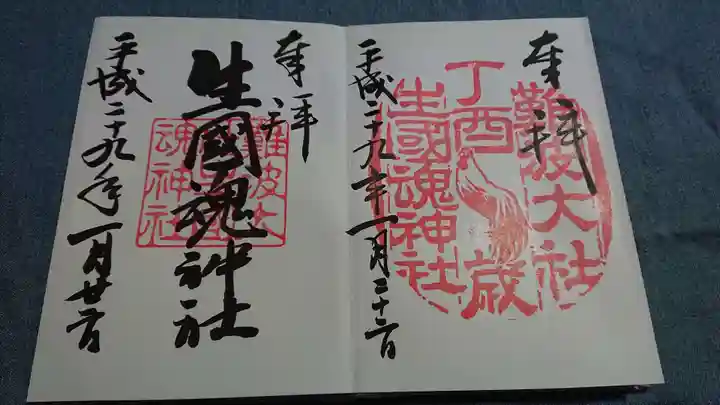 奉拝
難波大社
丁酉歳
生國魂神社
平成二十九年一月二十二日
奉拝
難波大
生國魂神社
魂神社
平成二十九年一月廿二日